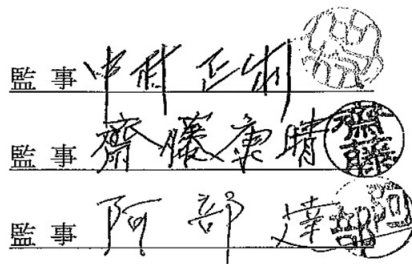 監事 中村正明
監事 齋藤康晴 齋藤
監事 阿部達 阿部